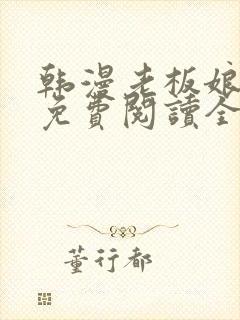 韩漫老板娘
免費閱讀全
董行都